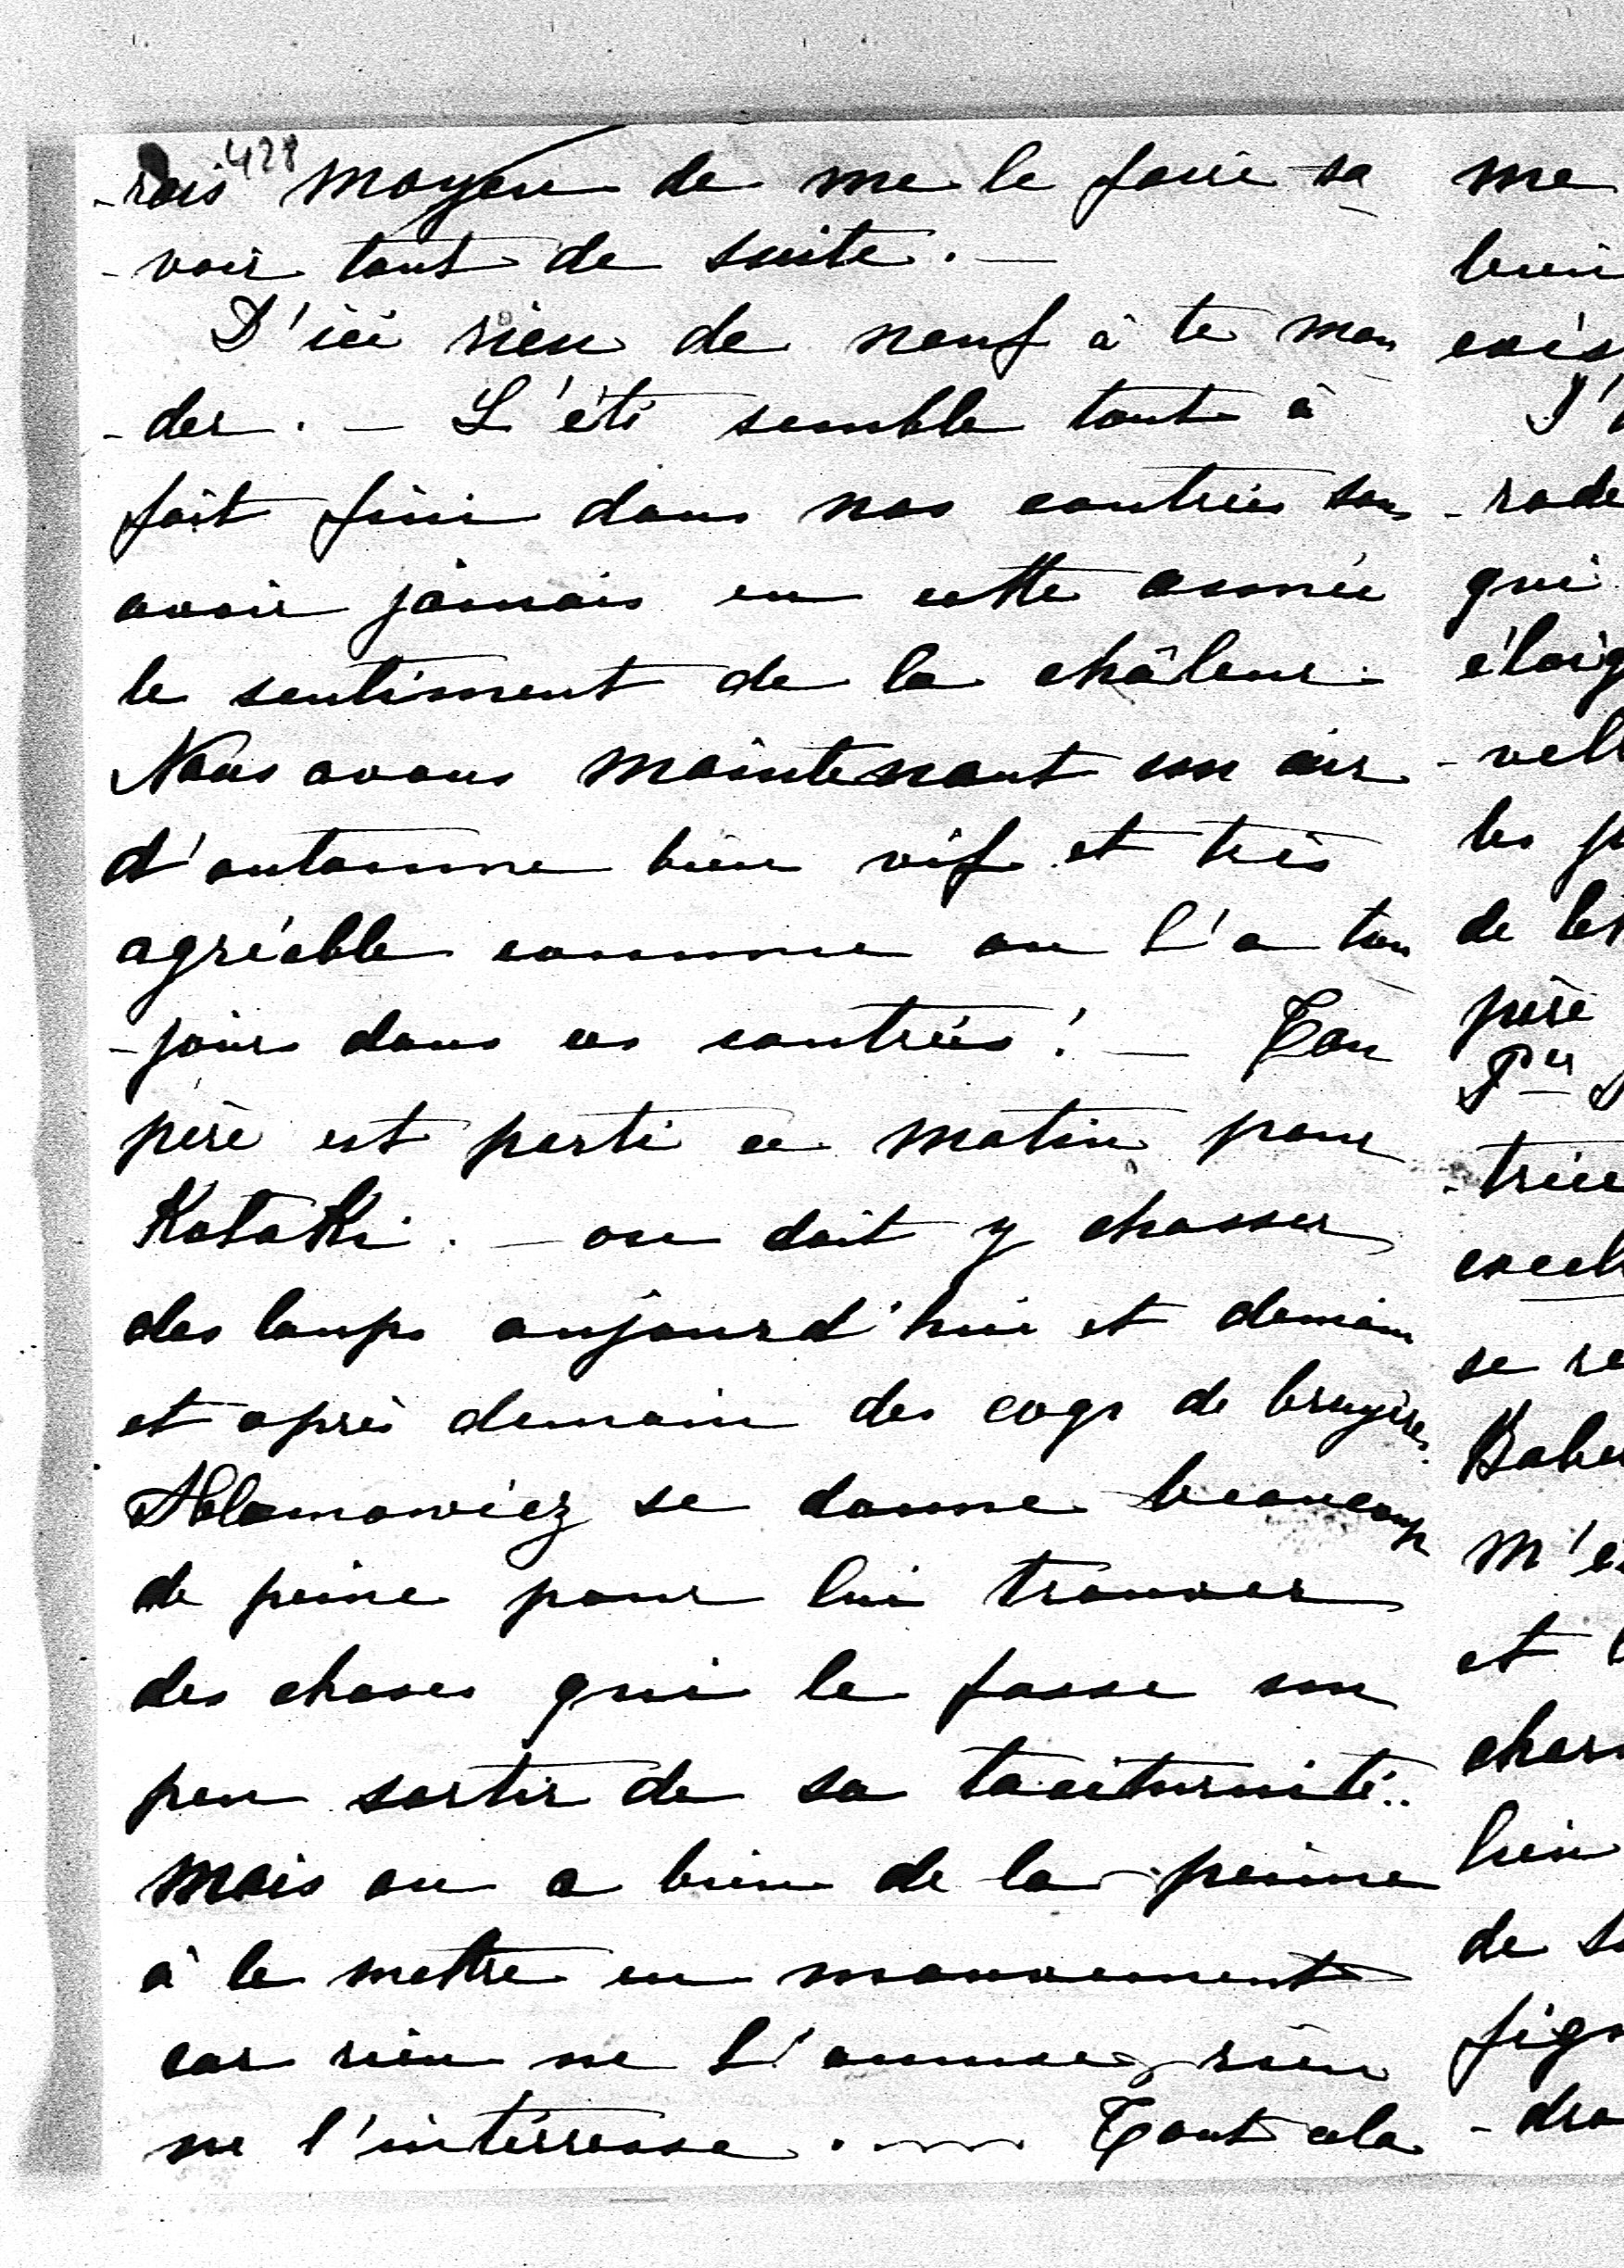 428
-rais moyen de me le faire sa
-voir tout de suite. —
D'ici rien de neuf à te man
-der. — L'été semble tout à
fait fini dans nos contrées sans
avoir jamais eu cette année
le sentiment de la châleur.
Nous avons maintenant un air
d'automne bien vif et très
agréable comme on l'a tou
-jours dans ces contrées! — Ton
père est parti ce matin pour
Kotaki. — on doit y chasser
des loups aujourd'hui et demain
et après demain des coqs de bruyères.
se donne beaucoup
de peine pour lui trouver
des choses qui le fasse un
peu sortir de sa taciturnité..
mais on a bien de la peine
à le mettre en mouvement
car rien ne l'amuse, rien
ne l'intérresse. — Tout cela
me
bien
exis
J'
-rade
qui
éloig
-vell
les
de
père
-trice
excel
se re
m'e
et
char
bien
de
figu
-dra